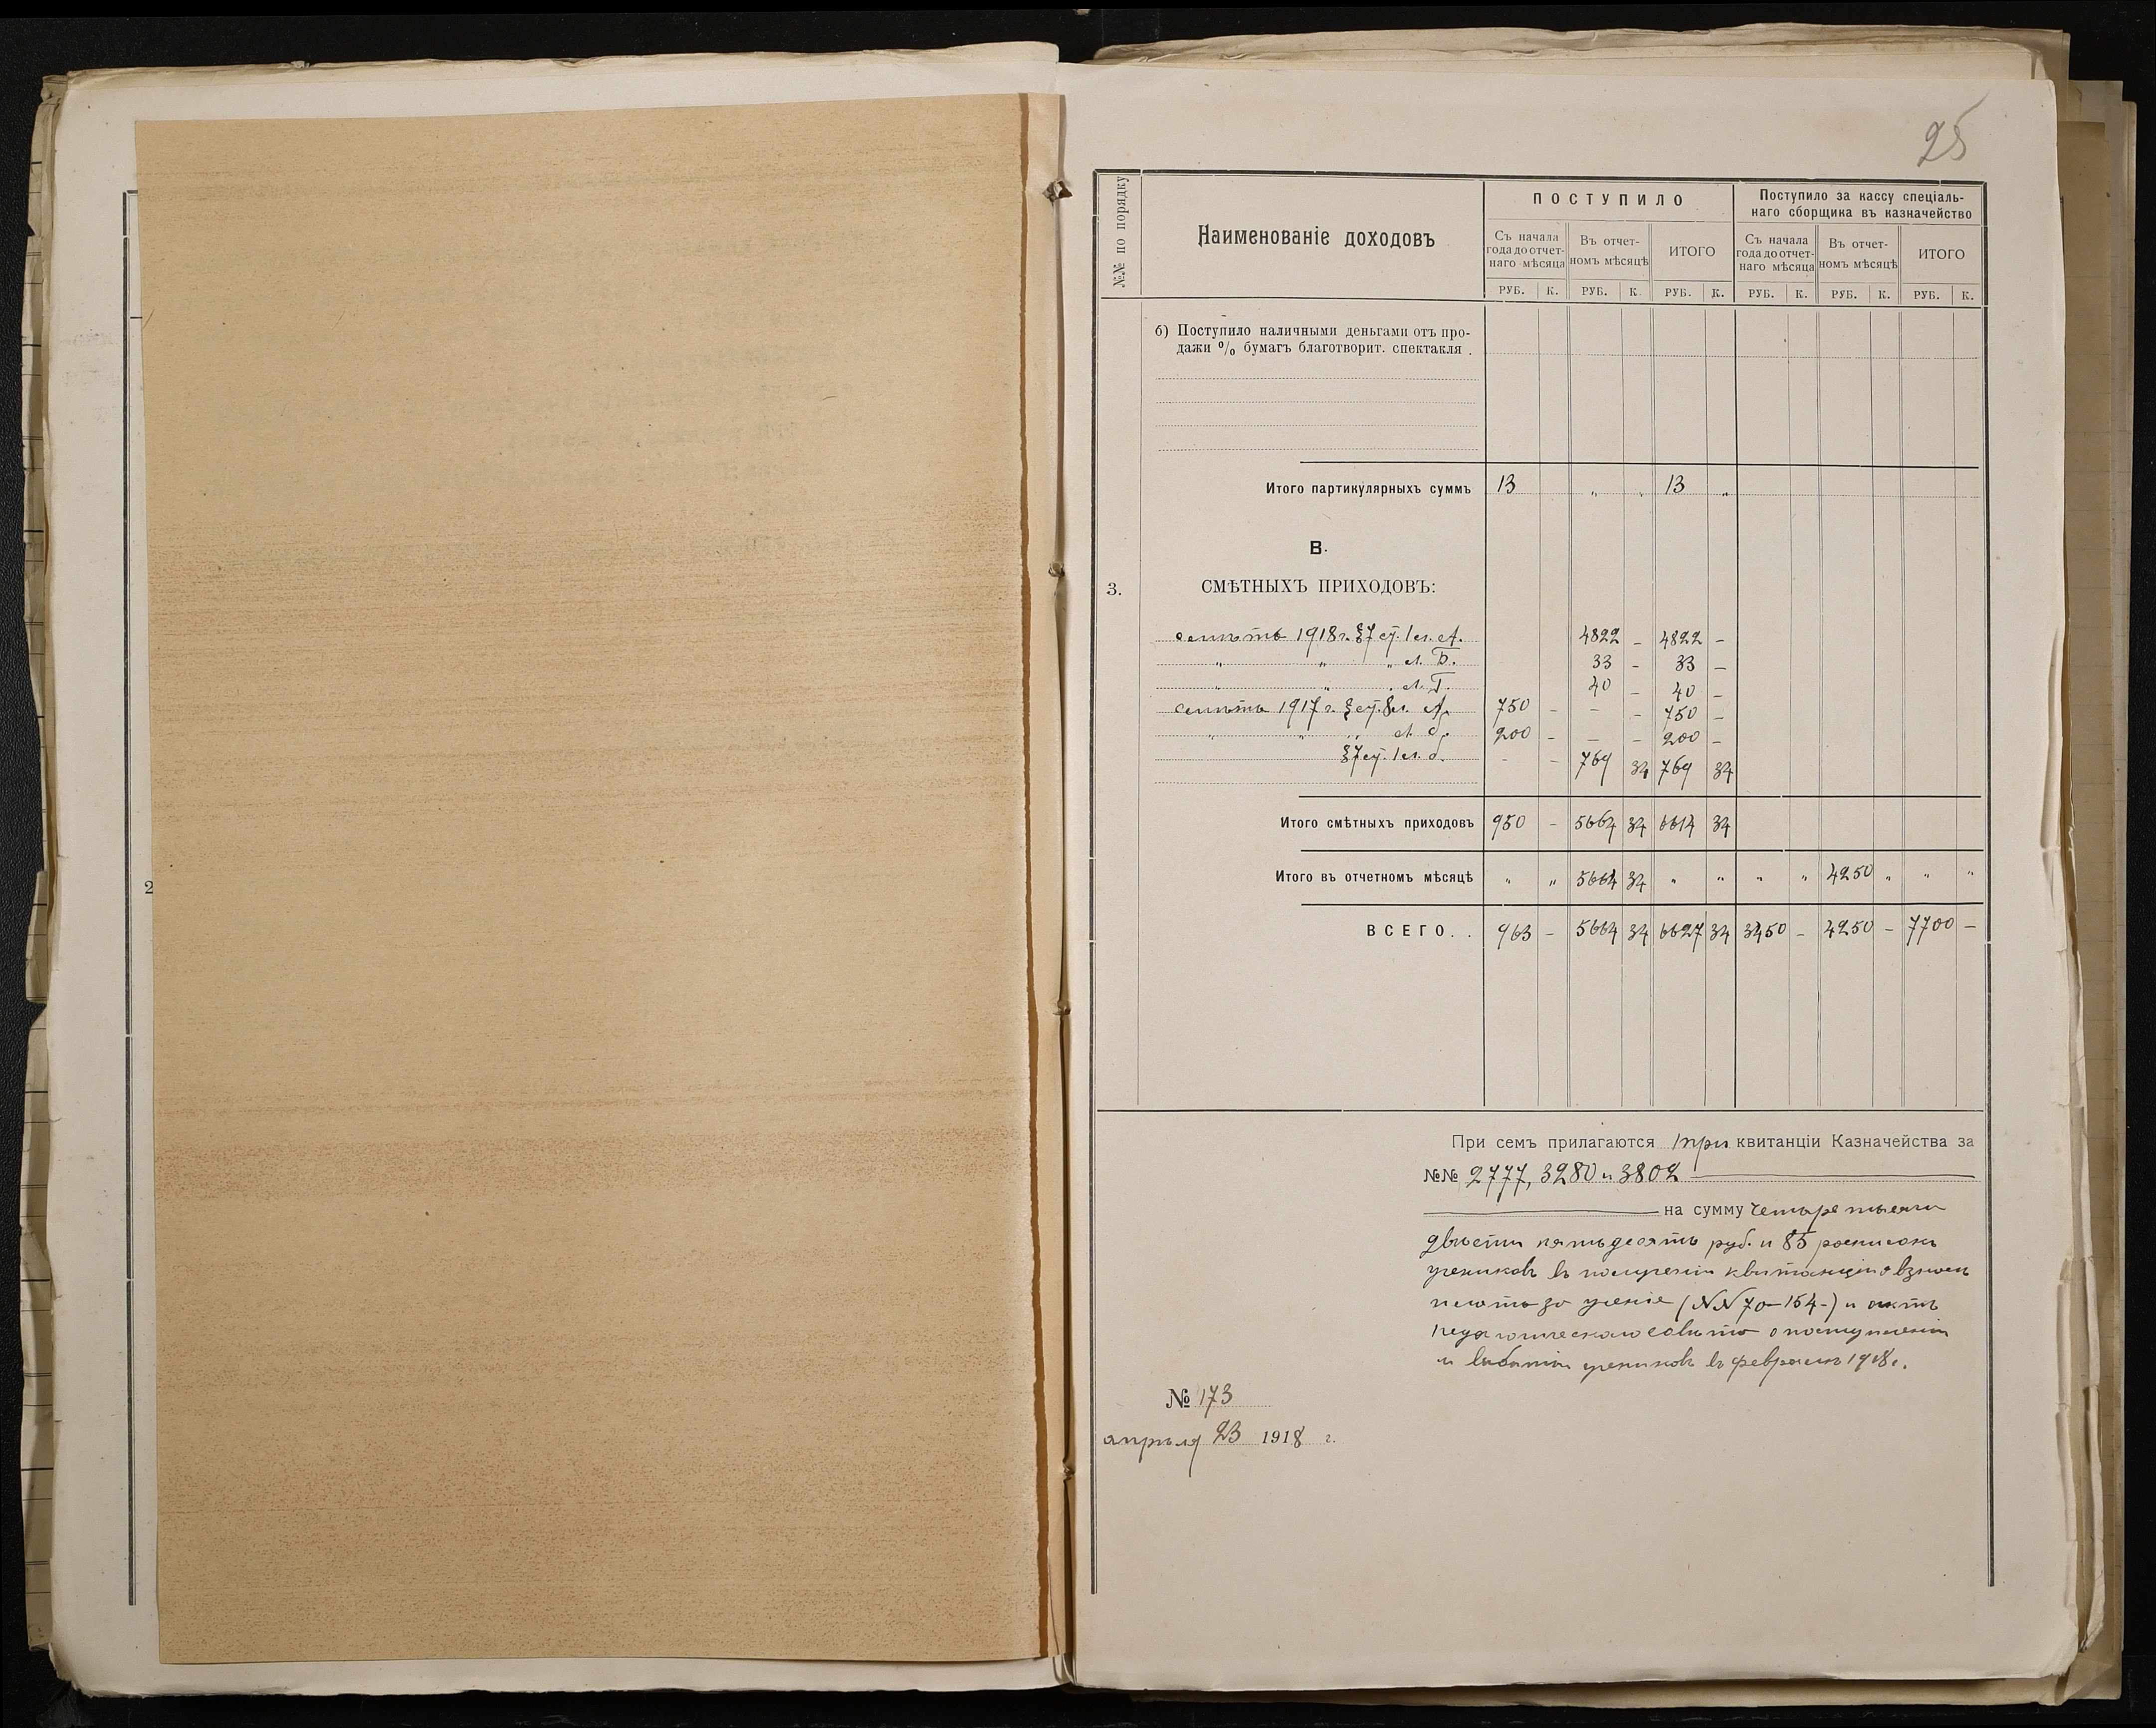 25
№№ по порядку
Наименованіе доходовъ
ПОСТУПИЛО
Поступило за кассу спеціаль-
наго сборщика въ казначейство
Съ начала
года до отчет-
наго мѣсяца
Въ отчет-
номъ мѣсяцѣ
ИТОГО
Съ начала
года до отчет-
наго мѣсяца
Въ отчет-
номъ мѣсяцѣ
ИТОГО
РУБ. К. РУБ. К. РУБ. К. РУБ. К. РУБ. К. РУБ. К.
б) Поступило наличными деньгами отъ про-
дажи % бумагъ благотворит. спектакля .
Итого партикулярныхъ суммъ 13 „ „ 13 „
В.
3. СМѢТНЫХЪ ПРИХОДОВЪ:
смѣта 1918 г. §7 ст. 1 л. А. 4822 – 4822 –
„ „ „ л. Б. 33 – 33 –
„ „ . л. Г. 40 – 40 –
смѣта 1917 г. § ст. 8 л. А. 750 – – – 750 –
„ „ „ л. б. 200 – – – 200 –
§7 ст. 1 л. б. – – 769 34 769 34
Итого смѣтныхъ приходовъ 950 – 5664 34 6614 34
Итого въ отчетномъ мѣсяцѣ „ „ 5664 34 „ „ „ „ 4250 „ „ „
ВСЕГО. . 963 – 5664 34 6627 34 3450 – 4250 – 7700 –
При семъ прилагаются три квитанціи Казначейства за
№№ 2777, 3280 и 3802
на сумму четыре тысячи
двѣсти пятьдесятъ руб. и 85 росписокъ
учениковъ въ полученіи квитанціи о взносѣ
платы за ученіе (NN 70–154-) и актъ
педагогическаго совѣта о поступленіи
и выбытіи учениковъ въ февралѣ 1918 г.
№ 173
апрѣля 23 1918 г.
2